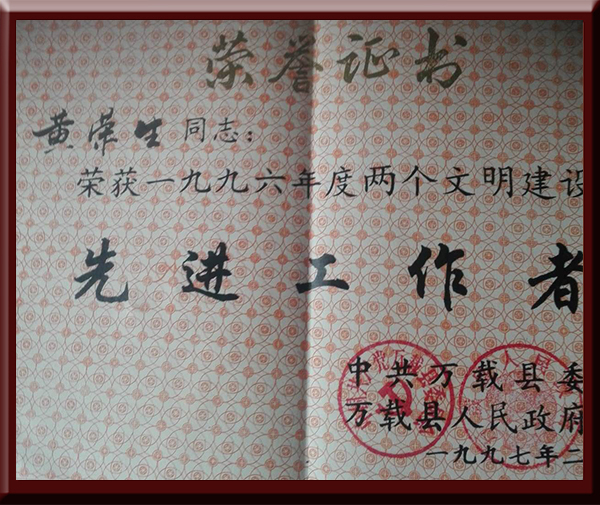 荣誉证书
黄荣生 同志：
荣获一九九六年度两个文明建设
先进工作者
中共万载县委
万载县人民政府
一九九七年二